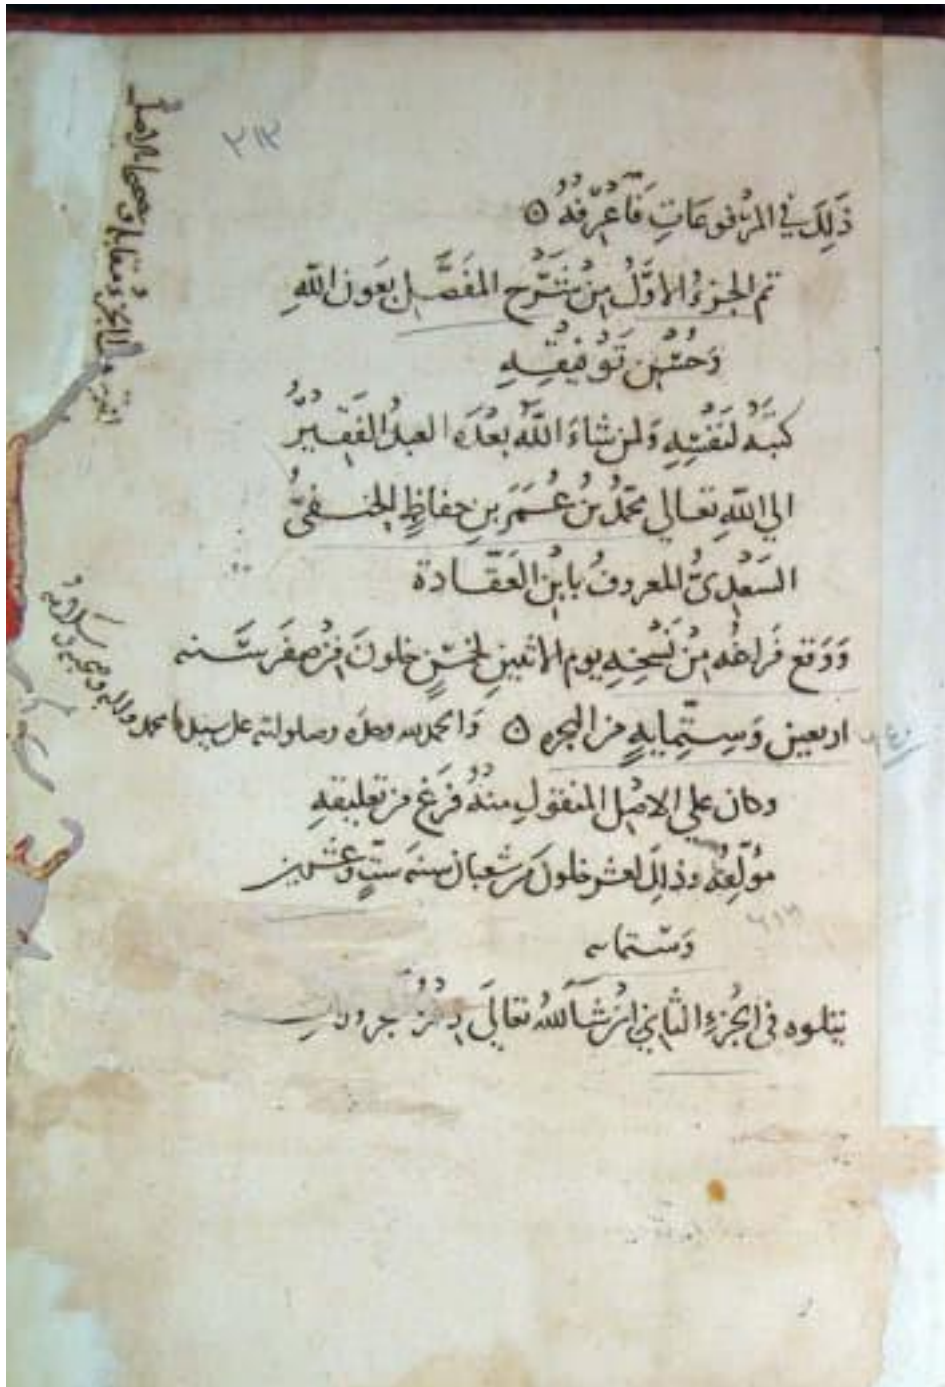 ٢١٢
ذَلِكَ في المرْفوعَاتِ فَاعْرِفْهُ ۞
تم الجزءُ الاوَّلُ مِنْ شَرْحِ المفَصَّلِ بعَونِ اللهِ
وَحُسْنِ تَوْفيقِهِ
كتبَهُ لنَفْسِهِ وَلمن شاءَ اللهُ بعْدَه العبدُ الفَقيرُ
الي اللهِ تعَالي محمّدُ بنُ عُمَرَ بنِ حِفاظٍ الحنَفيُّ
السَعْدِيُّ المعروفُ بابْنِ العَقَّادَة
وَوَقع فَراغُه مِنْ نَسْخِهِ يوم الاثنينِ لخمْسٍ خلونَ مِنْ صفَر سَنه
اربعين وَسِتِّمايةٍ من الهجره ۞ وَالحمد لله وحدَه وصلواته على سيدنا محمد واله وصحبه وسلامه
٦٤٠
وكان علي الاصْلِ المنقولِ منْهُ فَرَغَ من تعليقهِ
مُؤلِّفُهُ وذلك لعشر خلون من شعبان سنَة ستٍّ وعشرين
وَستمايه
يتلوه في الجُزءِ الثاني انْ شَاءَ اللهُ تعَالَى